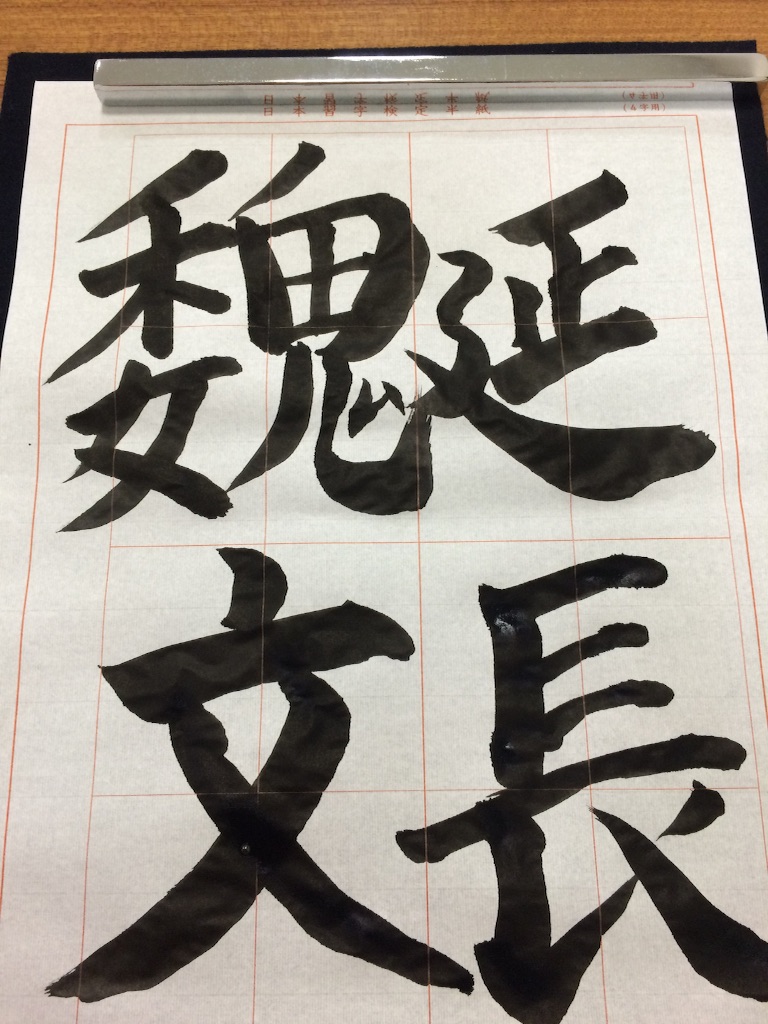 日本習字検定半紙
(4字用)
延長
魏文